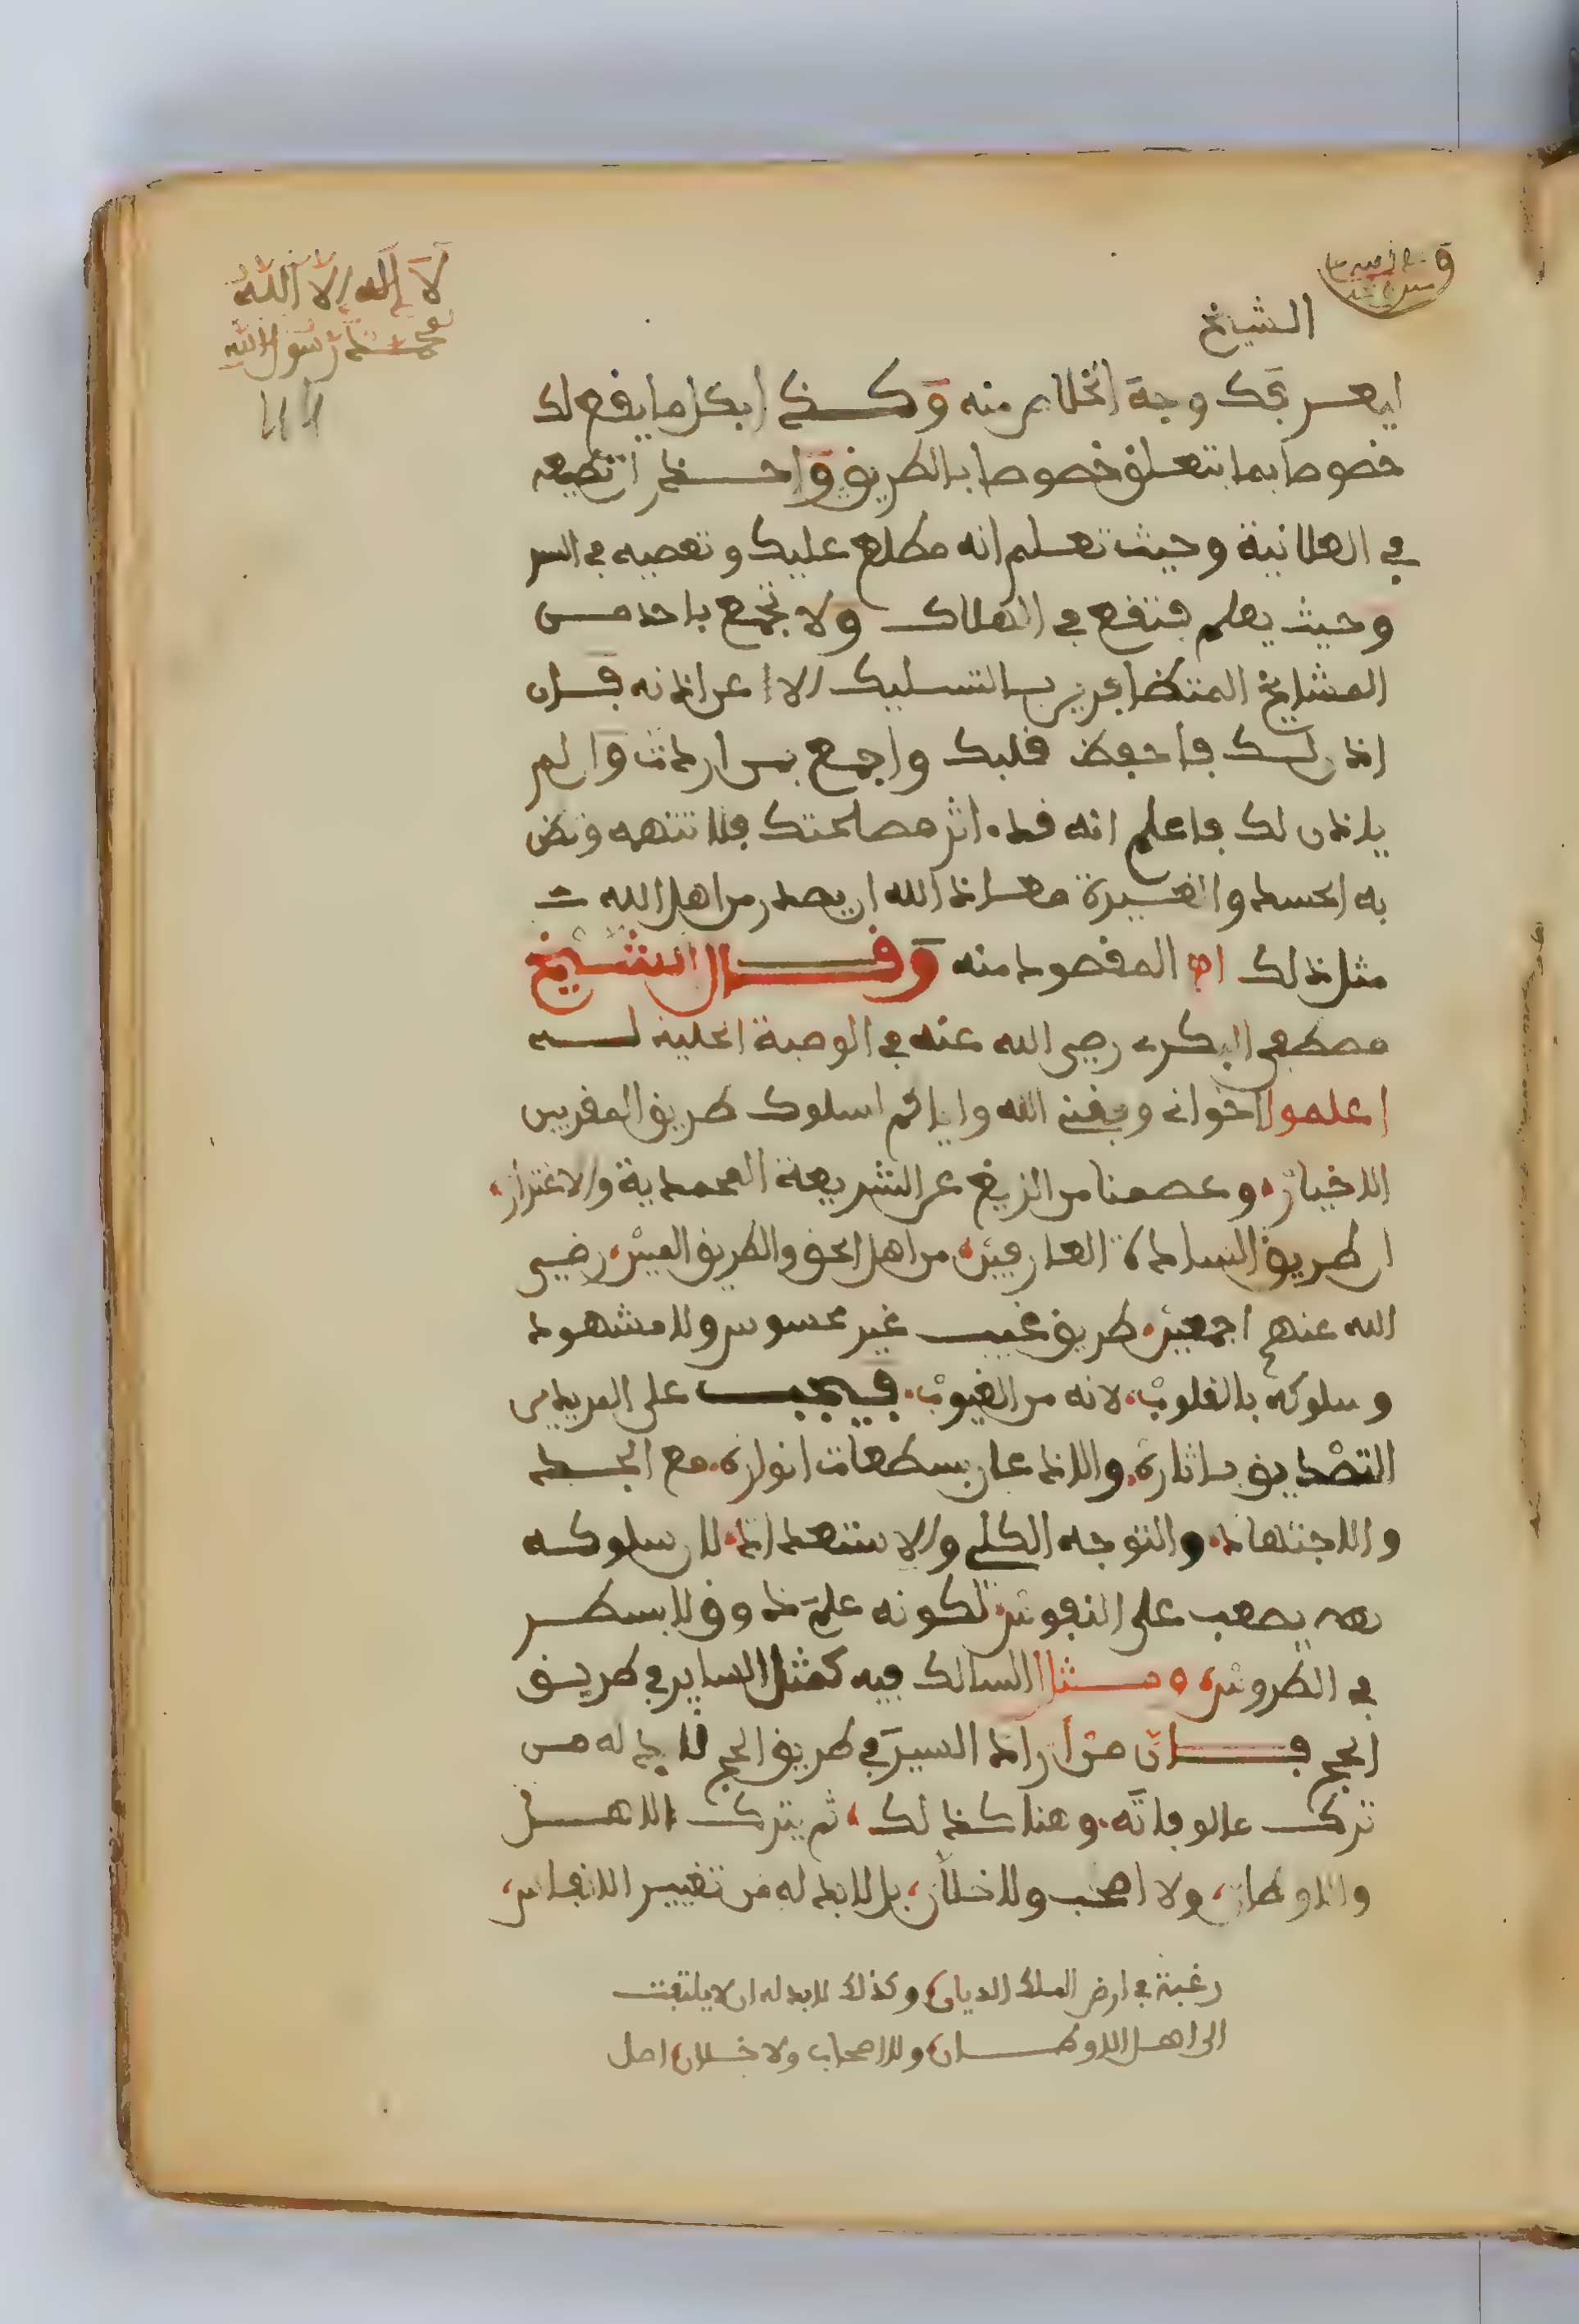 لا إله إلا الله
محمد رسول الله
الشيخ
ليعرفك وجه الخلاص منه وكذا بكل ما يقع لك
خصوصا بما يتعلق خصوصا بالطريق واحذر ان تطيعه
في العلانية وحيث تعلم انه مطلع عليك وتعصيه في السر
وحيث يعلم فتقع في الهلاك ولا تجمع باحد من
المشايخ المتظاهرين بالتسليك الا عن اذنه فان
اذن لك فاحفظ قلبك واجمع بمن اردت وان لم
ياذن لك فاعلم انه قد اثر مصلحتك فلا تتهمه وتظن
به الحسد والغيرة معاذ الله ان يصدر من اهل الله
مثل ذلك اه المقصود منه وقال الشيخ
مصطفى البكري رضي الله عنه في الوصية الجلية له
اعلموا اخواني وفقني الله واياكم لسلوك طريق المقربين
الاخيار وعصمنا من الزيغ عن الشريعة المحمدية والاغترار
ان طريق السادة العارفين من اهل الحق والطريق المبين رضي
الله عنهم اجمعين طريق غيب غير محسوس ولا مشهود
وسلوكه بالقلوب لانه من الغيوب فيجب على المريدين
التصديق باثاره والاذعان بسطعات انواره مع الجد
والاجتهاد والتوجه الكلي والاستعداد لان سلوكه
يصعب على النفوس لكونه علم ذوق لا يسطر
في الطروس ومثل السالك فيه كمثل الساير في طريق
الحج فان من اراد السير في طريق الحج لا بد له من
ترك مالوفاته وهنا كذلك ثم يترك الاهل
والاوطان ولا صحب ولا خلان بل لا بد له من تغيير الانفاس
رغبة في ارض الملك الديان وكذلك لا بد له ان لا يلتفت
الى اهل الاوطان ولا اصحاب ولا خلان اصل